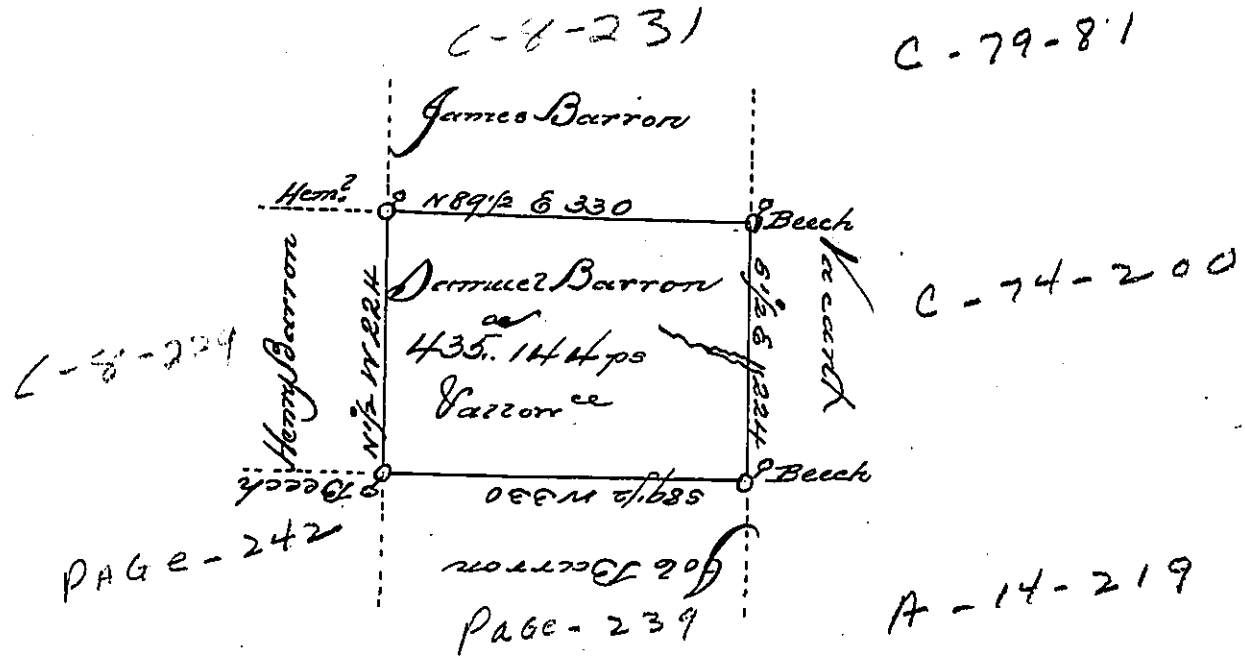 C-8-231
C-79-81
James Barron
Hem?
N89½ E 330
Beech
Henry Barron
N½ W 224
Samuel Barron
ac
435. 144 ps
& allow ce
S½ E 224
Vacant
C-74-200
C-8-
Beech
S89½ W 330
Beech
Job Barron
PAGE-242
PAGE-239
A-14-219